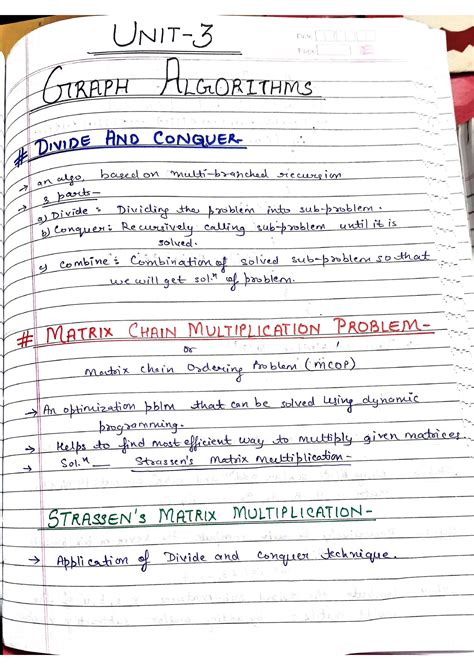 UNIT-3
GRAPH ALGORITHMS
# DIVIDE AND CONQUER-
→ an algo, based on multi-branched recursion
→ 3 parts-
a) Divide : Dividing the problem into sub-problem.
b) Conquer: Recursively calling sub-problem until it is
solved.
c) Combine : Combination of solved sub-problem so that
we will get solⁿ of problem.
# MATRIX CHAIN MULTIPLICATION PROBLEM-
or
Matrix Chain Ordering Problem (MCOP)
→ An optimization pblm that can be solved using dynamic
programming.
→ Helps to find most efficient way to multiply given matrices
→ Solⁿ — Strassen's Matrix Multiplication-
STRASSEN'S MATRIX MULTIPLICATION-
→ Application of Divide and Conquer technique.